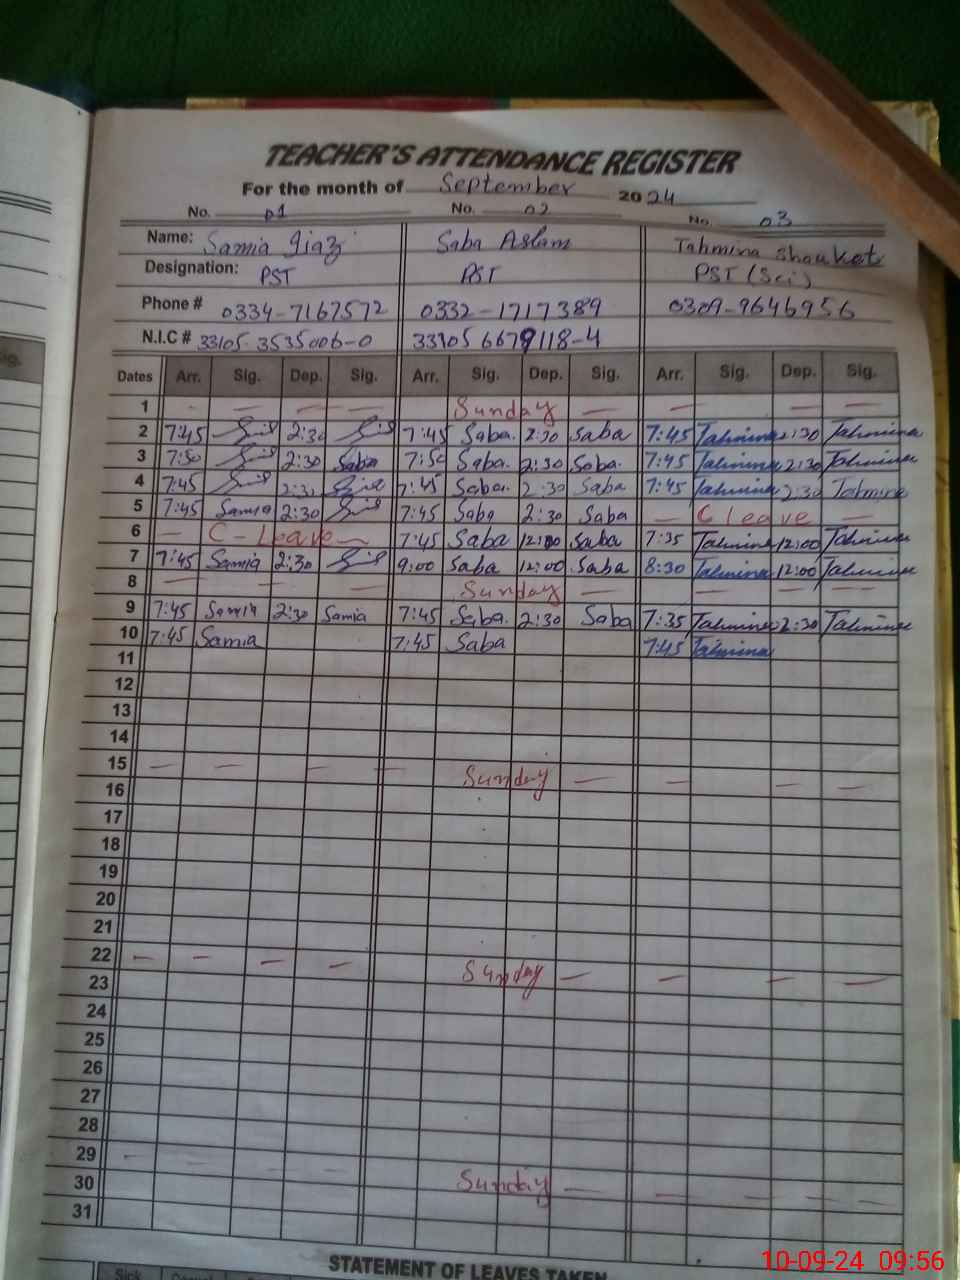 TEACHER'S ATTENDANCE REGISTER
For the month of September 2024
No. 01 No. 02 No. 03
Name: Samia Saba Aslam Tahmina Shaukat
Designation: PST PST PST (Sci)
Phone # 0334-7167572 0332-1717389 0309-9646956
N.I.C # 33105-3535006-0 33105 6679118-4
Dates Arr. Sig. Dep. Sig. Arr. Sig. Dep. Sig. Arr. Sig. Dep. Sig.
1 - — — — Sunday — — — —
2 7:45 2:30 7:45 Saba. 2:30 Saba 7:45 Tahmina 2:30 Tahmina
3 7:50 2:30 Saba 7:50 Saba. 2:30 Saba. 7:45 Tahmina 2:30 Tahmina
4 7:45 2:30 7:45 Saba. 2:30 Saba 7:45 Tahmina 2:30 Tahmina
5 7:45 Samia 2:30 7:45 Saba 2:30 Saba — C leave —
6 — C - Leave — 7:45 Saba 12:00 Saba 7:35 Tahmina 12:00 Tahmina
7 7:45 Samia 2:30 9:00 Saba 12:00 Saba 8:30 Tahmina 12:00 Tahmina
8 — — — Sunday — — — —
9 7:45 Samia 2:30 Samia 7:45 Saba. 2:30 Saba 7:35 Tahmina 2:30 Tahmina
10 7:45 Samia 7:45 Saba 7:45 Tahmina
11
12
13
14
15 — — — — Sunday — — — —
16
17
18
19
20
21
22 — — — — Sunday — — — —
23
24
25
26
27
28
29 - - - - Sunday — — — —
30
31
STATEMENT OF LEAVES TAKEN
Sick
10-09-24 09:56